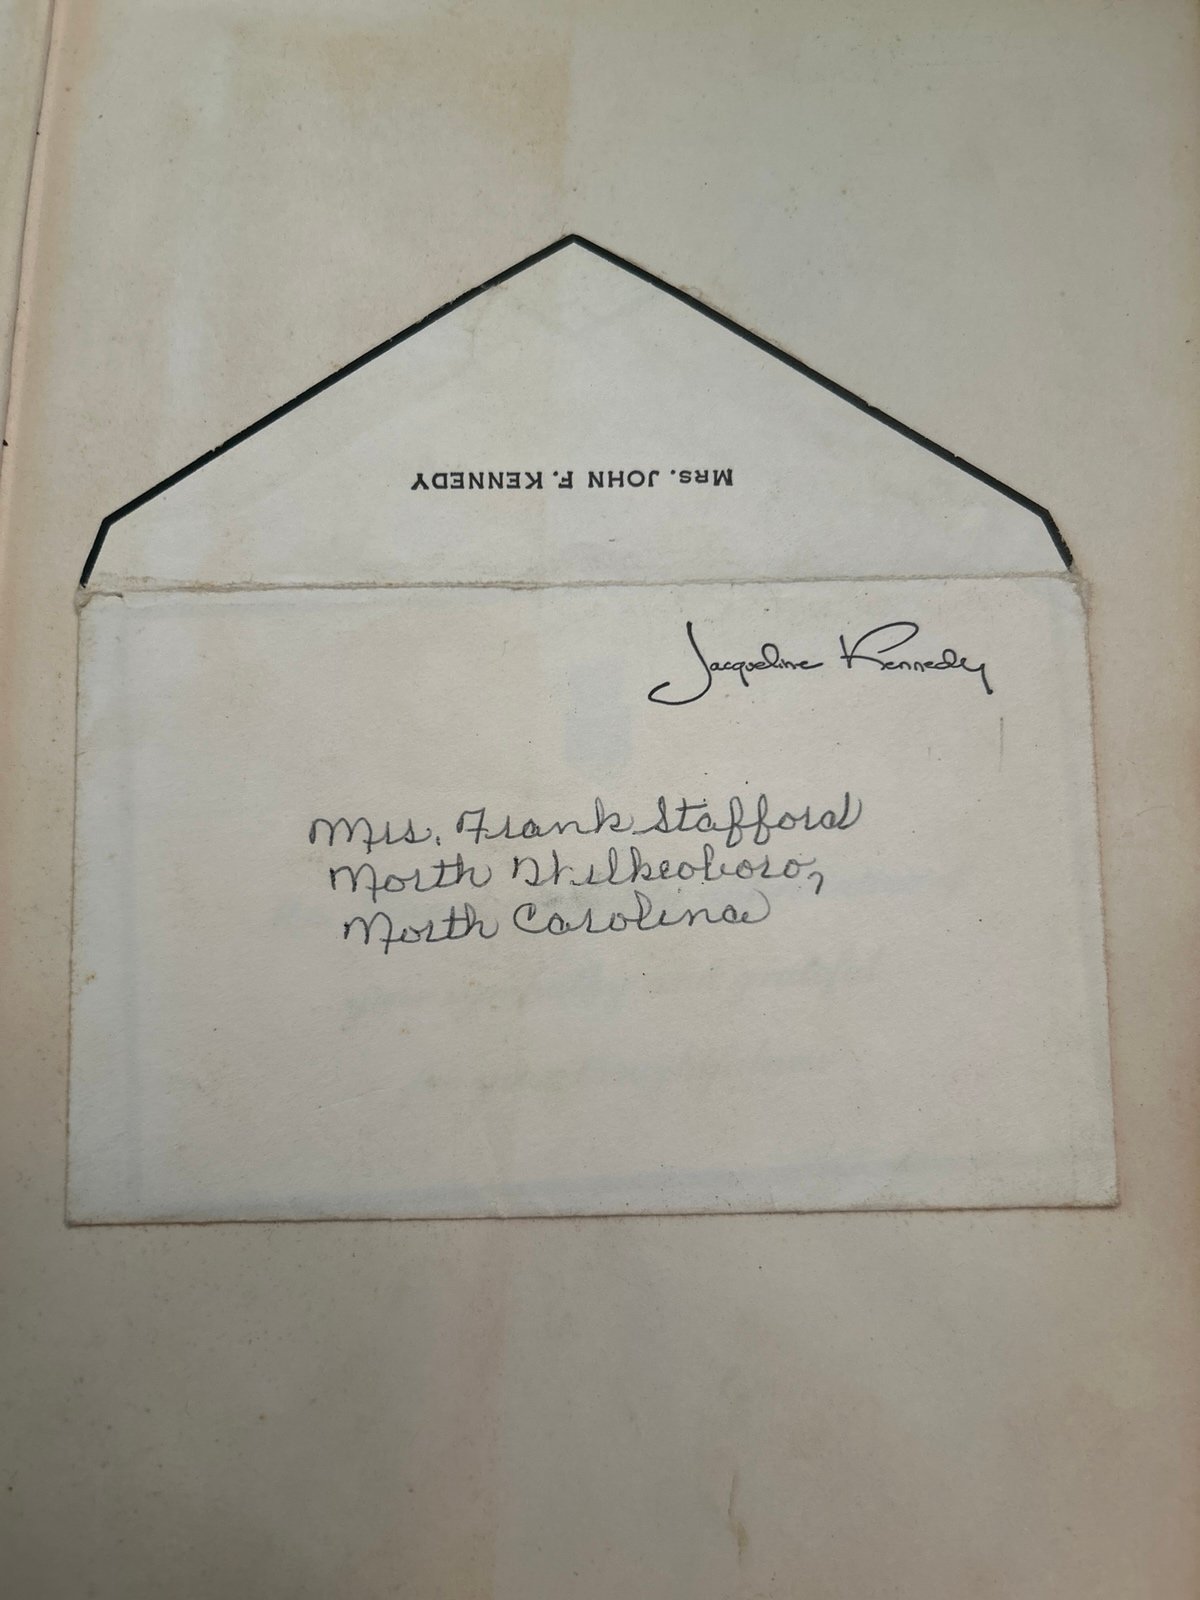 MRS. JOHN F. KENNEDY
Jacqueline Kennedy
Mrs. Frank Stafford
North Wilkesboro,
North Carolina